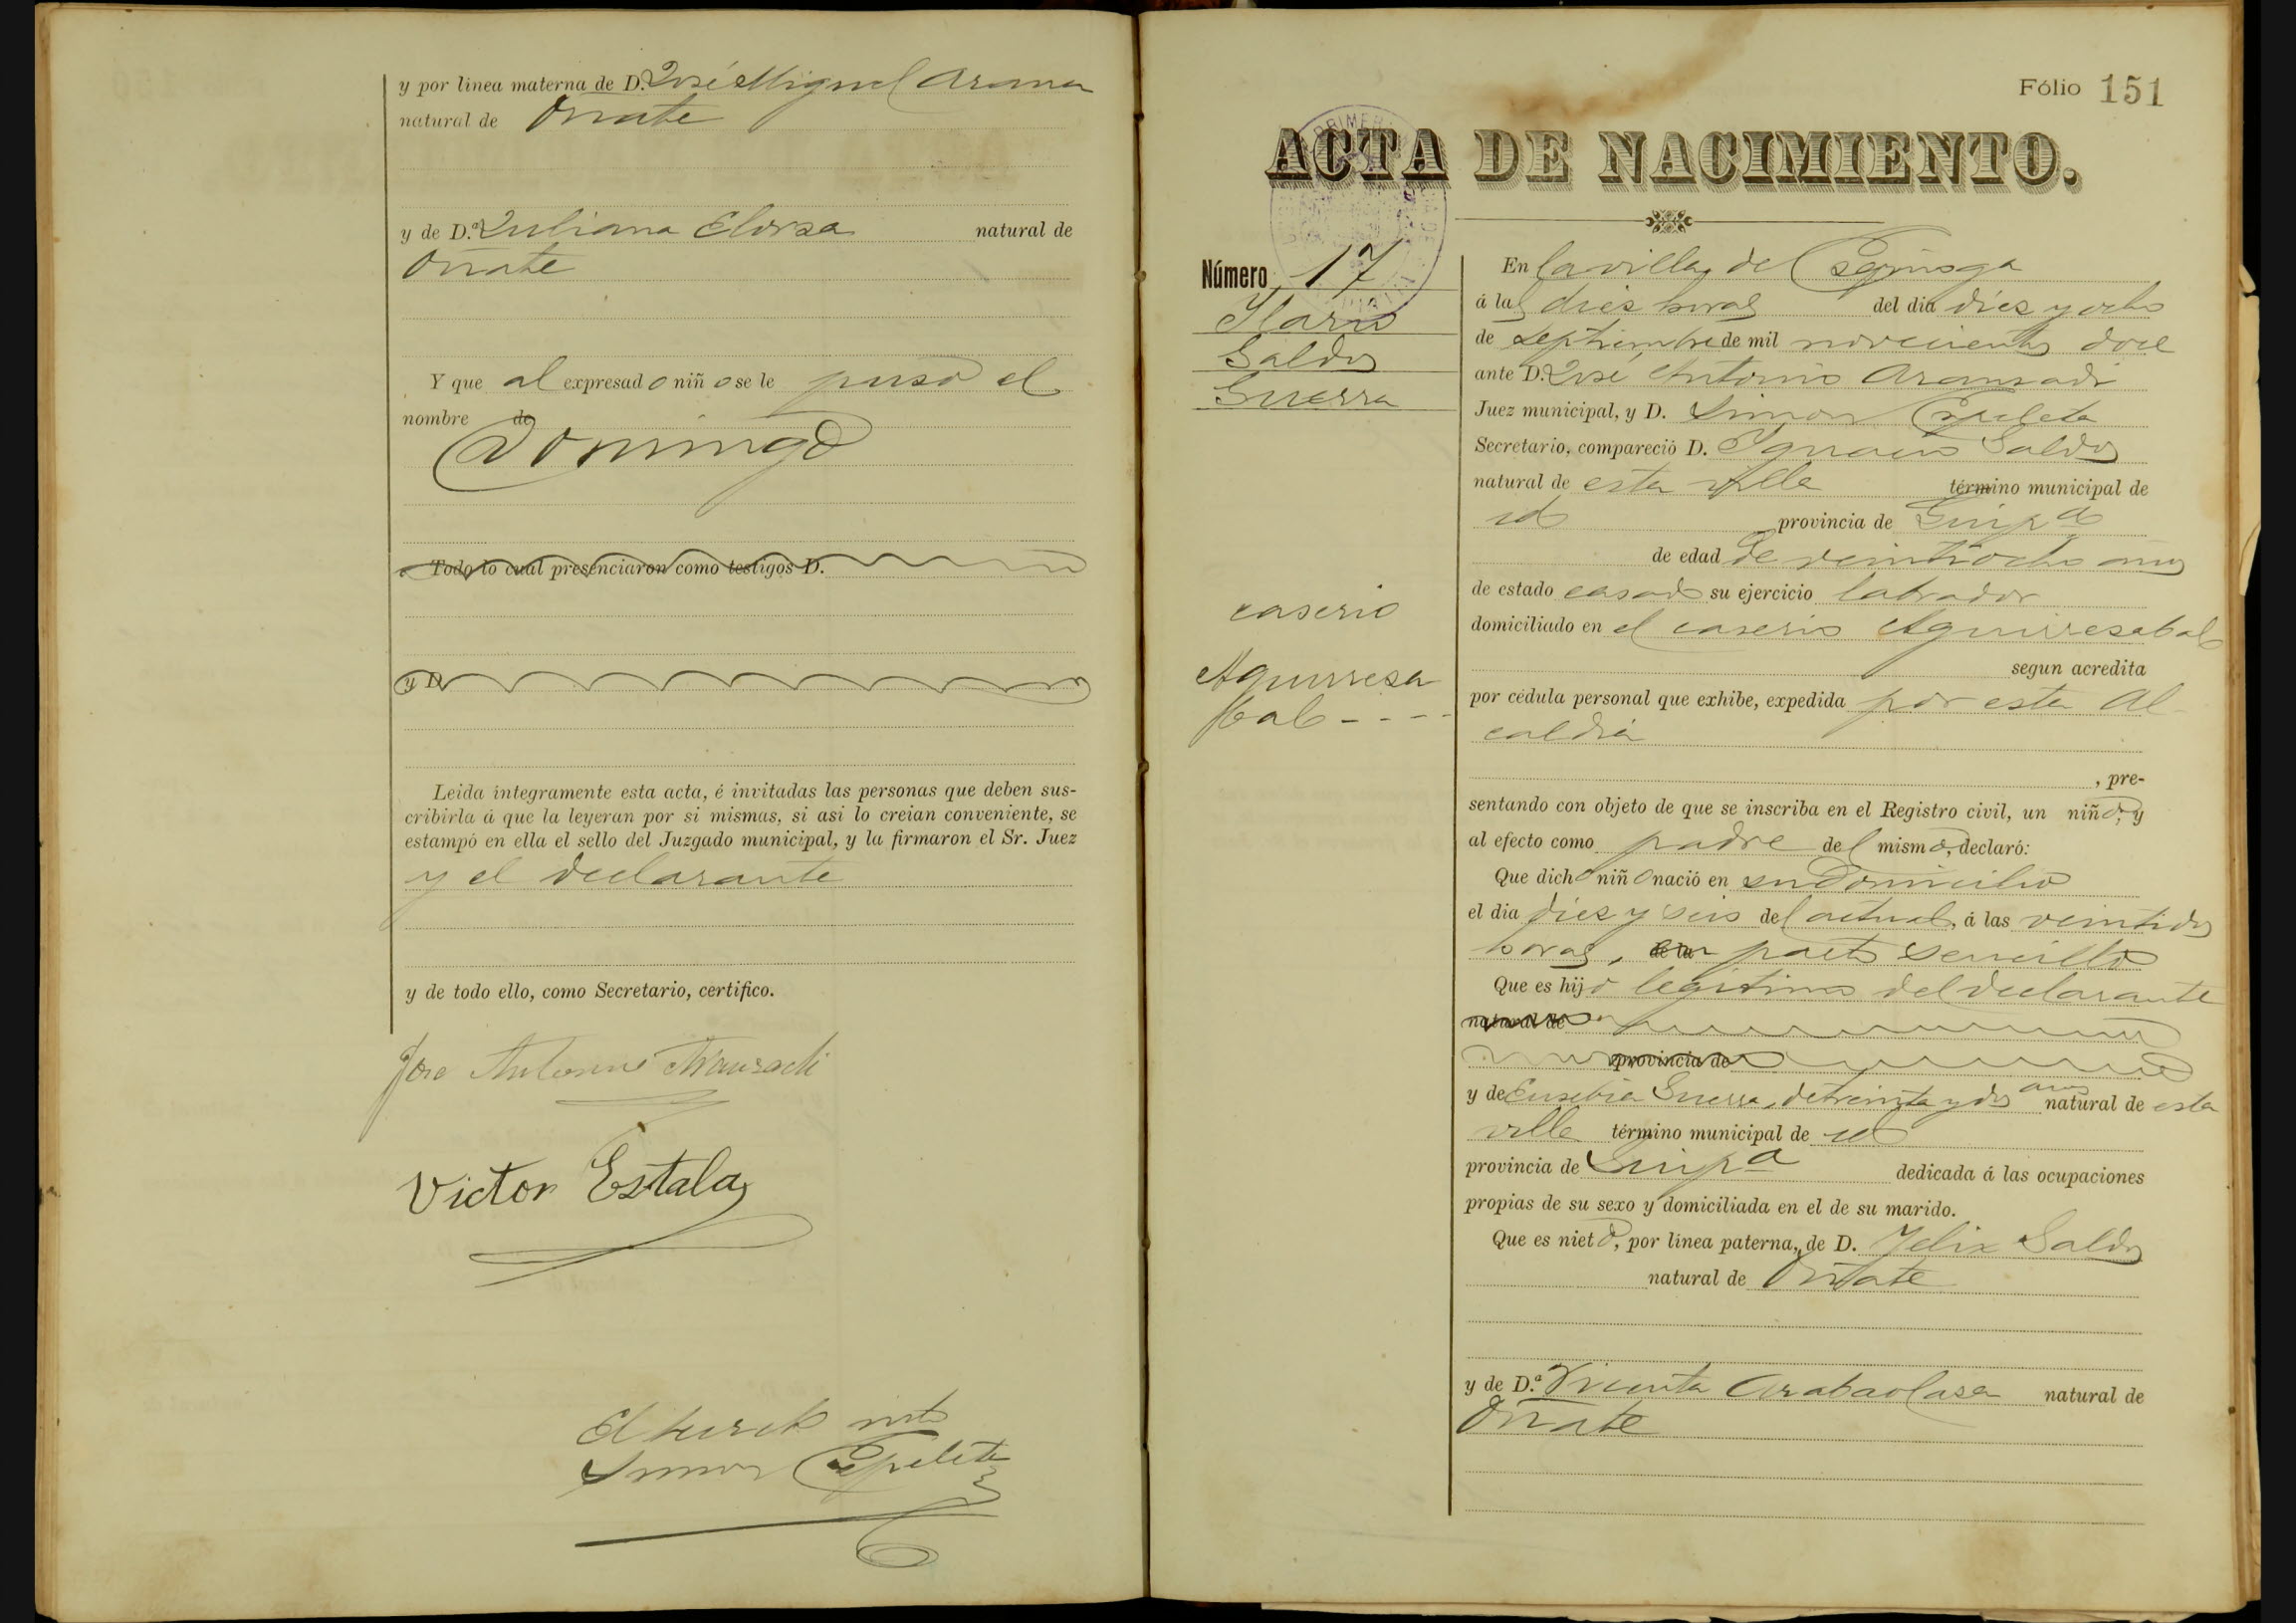 y por linea materna de D. José Miguel Arana
natural de Oñate
y de D.ª Juliana Elorza natural de
Oñate
Y que al expresado niño se le puso el
nombre de
Domingo
Todo lo cual presenciaron como testigos D.
y D.
Leida íntegramente esta acta, é invitadas las personas que deben sus-
cribirla á que la leyeran por si mismas, si asi lo creian conveniente, se
estampó en ella el sello del Juzgado municipal, y la firmaron el Sr. Juez
y el declarante
y de todo ello, como Secretario, certifico.
Jose Antonio Aranzadi
Victor Estala
El
Simon Espeleta
Fólio 151
ACTA DE NACIMIENTO.
Número 17
Ilario
Saldos
Guerra
caserio
Aguirresa
bal - - - -
En la villa de
á las dies horas del dia dies y ocho
de Septiembre de mil novecientos doce
ante D. José Antonio Aransadi
Juez municipal, y D. Simon Espeleta
Secretario, compareció D. Ignacio Saldos
natural de esta villa término municipal de
id provincia de Guip.a
de edad de veintiocho años
de estado casado su ejercicio labrador
domiciliado en el caserio Aguirresabal
segun acredita
por cédula personal que exhibe, expedida por esta Al-
caldia
, pre-
sentando con objeto de que se inscriba en el Registro civil, un niño, y
al efecto como padre del mismo, declaró:
Que dicho niño nació en su domicilio
el dia dies y seis del actual, á las veintidos
horas, de la parto sencillo
Que es hijo legitimo del declarante
natural de
provincia de
y de Eusebia Guerra, de treinta y dos años natural de esta
villa término municipal de id
provincia de Guip.a dedicada á las ocupaciones
propias de su sexo y domiciliada en el de su marido.
Que es nieto, por linea paterna, de D. Felix Saldos
natural de Oñate
y de D.ª Vicenta Arabaolasa natural de
Oñate